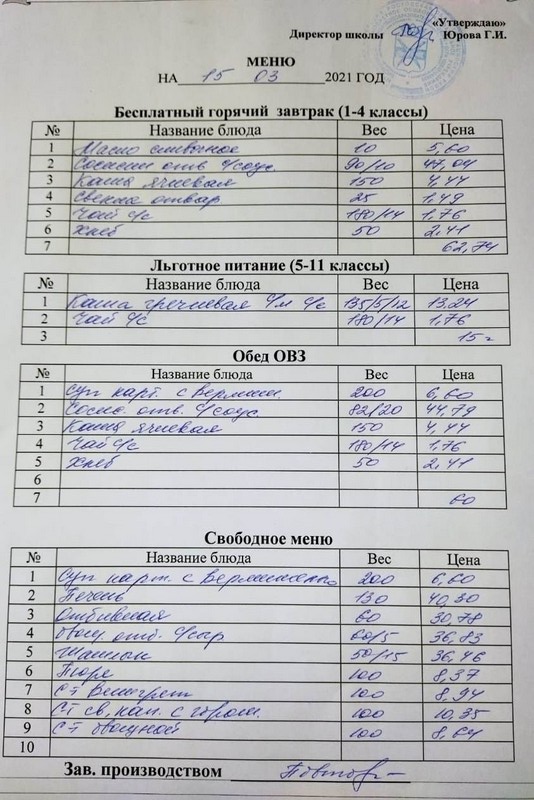 «Утверждаю»
Директор школы Юрова Г.И.
МЕНЮ
НА 15 03 2021 ГОД
Бесплатный горячий завтрак (1-4 классы)
№ Название блюда Вес Цена
1 Масло сливочное 10 5,60
2 Сосиски отв с/соус. 90/10 47,04
3 Каша ячневая 150 4,44
4 Свекла отвар 25 1,49
5 Чай с/с 180/14 1,76
6 Хлеб 50 2,41
7 62,74
Льготное питание (5-11 классы)
№ Название блюда Вес Цена
1 Каша гречневая с/м с/с 135/5/12 13,24
2 Чай с/с 180/14 1,76
3 15
Обед ОВЗ
№ Название блюда Вес Цена
1 Суп карт. с вермиш. 200 6,60
2 Сосис. отв. с/соус. 82/20 44,79
3 Каша ячневая 150 4,44
4 Чай с/с 180/14 1,76
5 Хлеб 50 2,41
6
7 60
Свободное меню
№ Название блюда Вес Цена
1 Суп карт. с вермишелью 200 6,60
2 Печень 130 40,30
3 Отбивная 60 30,78
4 отб. с/сыр 60/5 36,83
5 50/15 36,46
6 Пюре 100 8,37
7 С-т Винегрет 100 8,94
8 С-т св. кап. с горош. 100 10,35
9 С-т овощной 100 8,64
10
Зав. производством